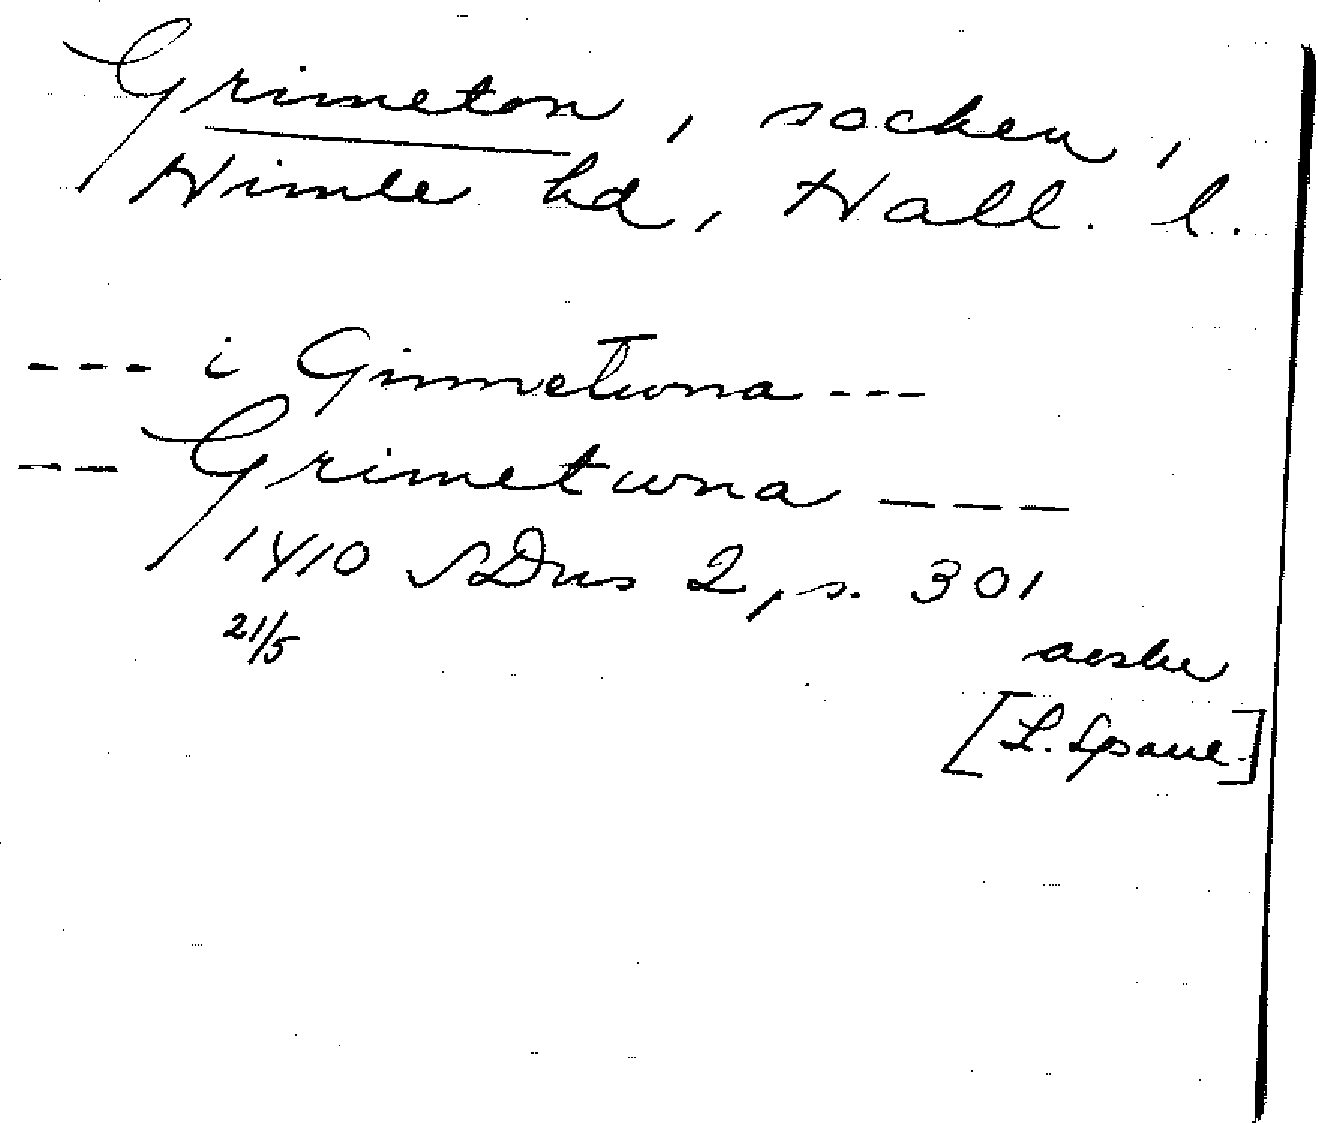 Grimeton, socken,
Himle hd, Hall. l.
--- i Grimetwna ---
-- Grimetwna ---
1410 SDns 2, s. 301
21/5
avskr
[L. Spaul]